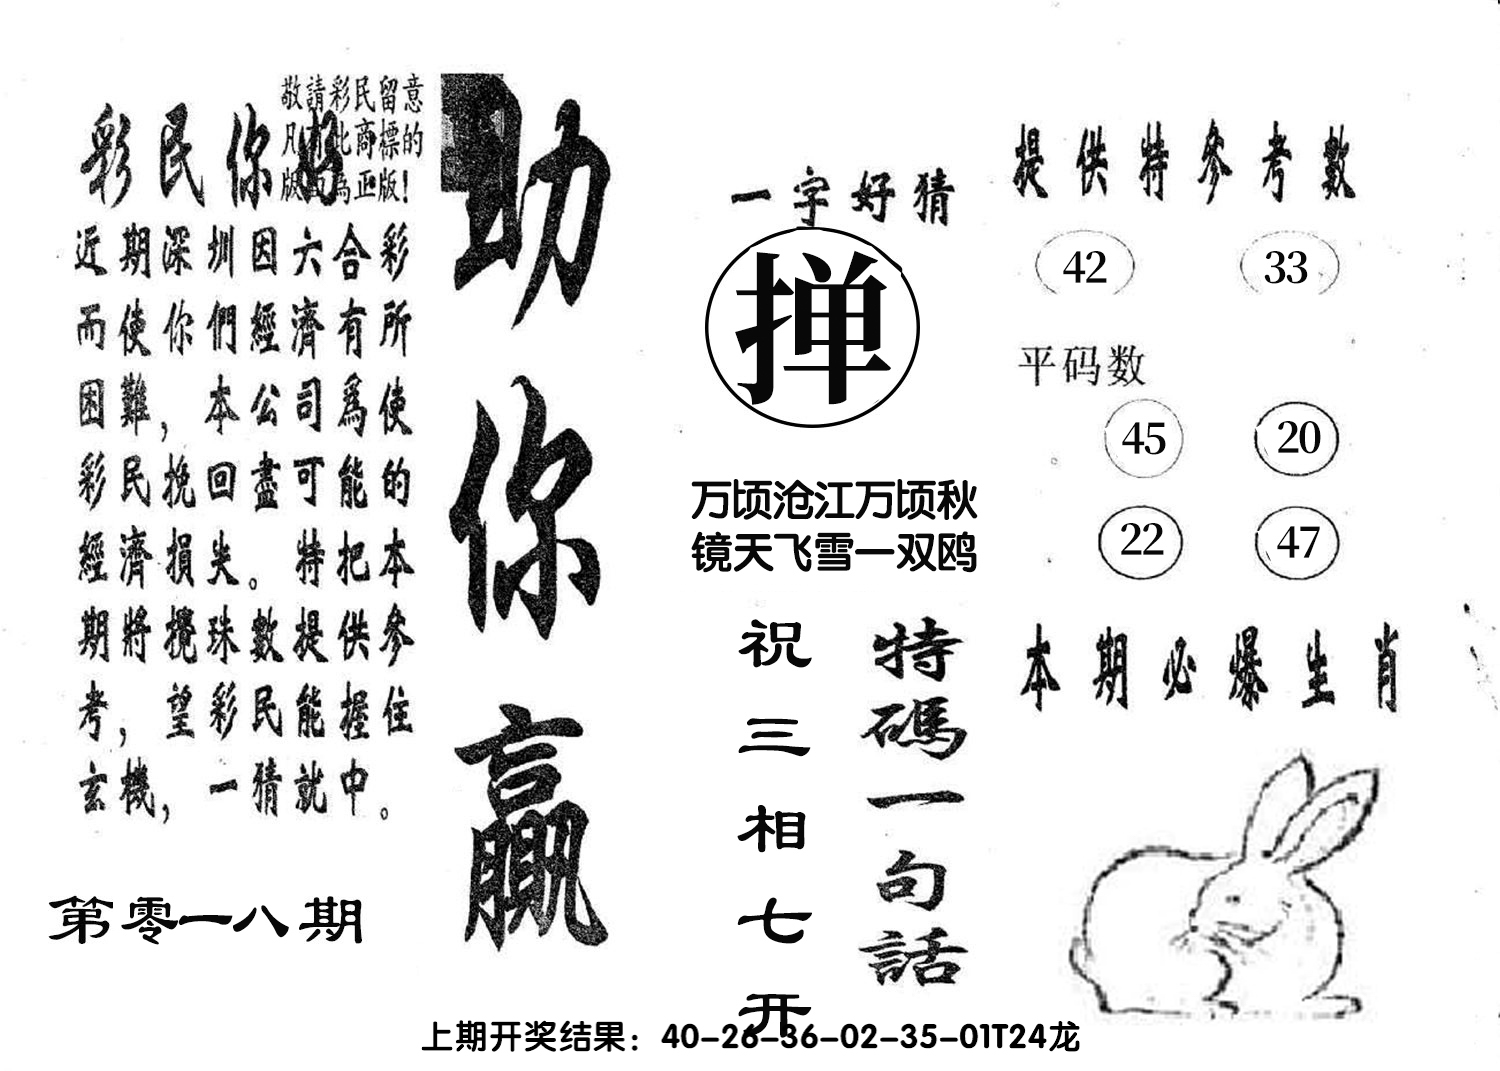 敬請彩民留意
凡有此商標的
版面為正版！
彩民你好
近期深圳因六合彩
而使你們經濟有所
困難，本公司爲使
彩民挽回盡可能的
經濟損失。特把本
期將攪珠數提供參
考，望彩民能握住
玄機，一猜就中。
第零一八期
助你贏
一字好猜
掸
万顷沧江万顷秋
镜天飞雪一双鸥
特碼一句話
祝三相七开
提供特參考數
42 33
平码数
45 20
22 47
本期必爆生肖
上期开奖结果：40-26-36-02-35-01T24龙